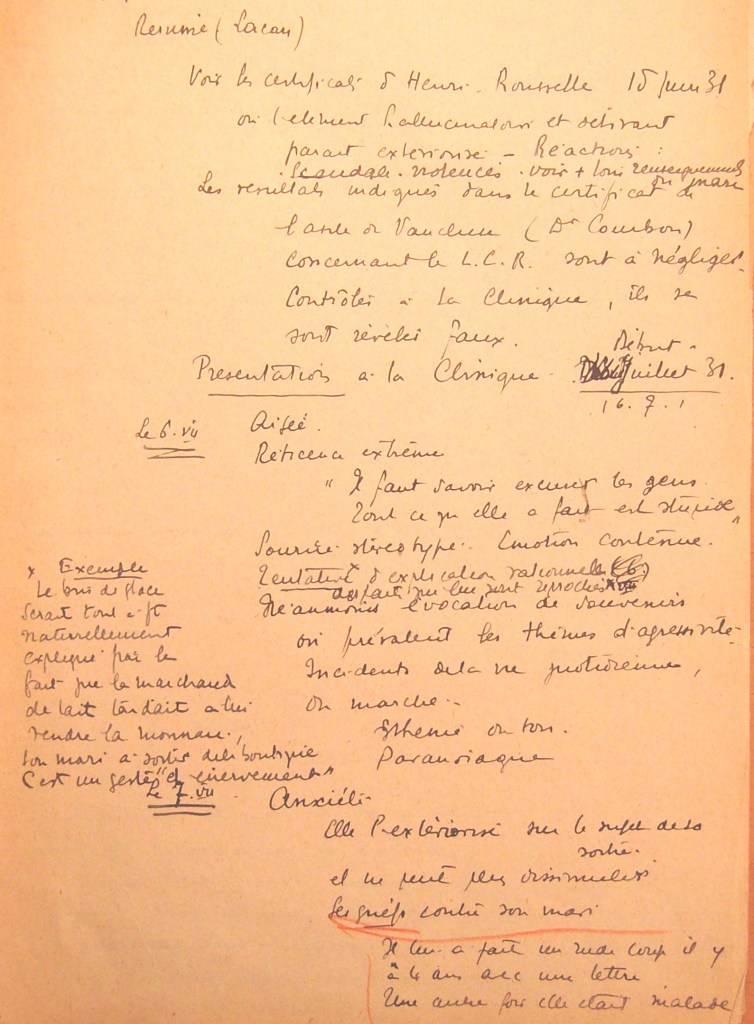 Résumé (Lacan)
Voir les certificats d'Henri-Rousselle 18 juin 31
où l'élément hallucinatoire et délirant
parait extériorisé – Réactions :
Scandale. violences. voir + loin renseignements du mari
Les résultats indiqués dans le certificat de
l'asile de Vaucluse (Dr Courbon)
concernant le L.C.R. sont à négliger.
Contrôlés à la Clinique, ils se
sont révélés faux.
Début
Présentation à la Clinique juillet 31.
16.7.1
Le 6.VII
Réticence extrême
"Il faut savoir excuser les gens
Tout ce qu'elle a fait est stupide"
Sourire stéréotypé. Emotion contenue.
Tentative x d'explication rationnelle
des faits qui lui sont reprochés
Néanmoins évocation de souvenirs
où prévalent les thèmes d'agressivité
Incidents de la vie quotidienne,
on marche
Sthénie du ton.
Paranoïaque
x Exemple
Le bris de glace
serait tout à ft
naturellement
expliqué par le
fait que la marchande
de lait tardait à lui
rendre la monnaie,
son mari à sortir de la boutique
C'est un geste "d'énervement"
Le 7.VII
Anxiété
Elle l'extériorise sur le sujet de sa
sortie.
et ne peut plus dissimuler
ses griefs contre son mari
Il lui a fait un rude coup il y
a 4 ans avec une lettre
Une autre fois elle était malade